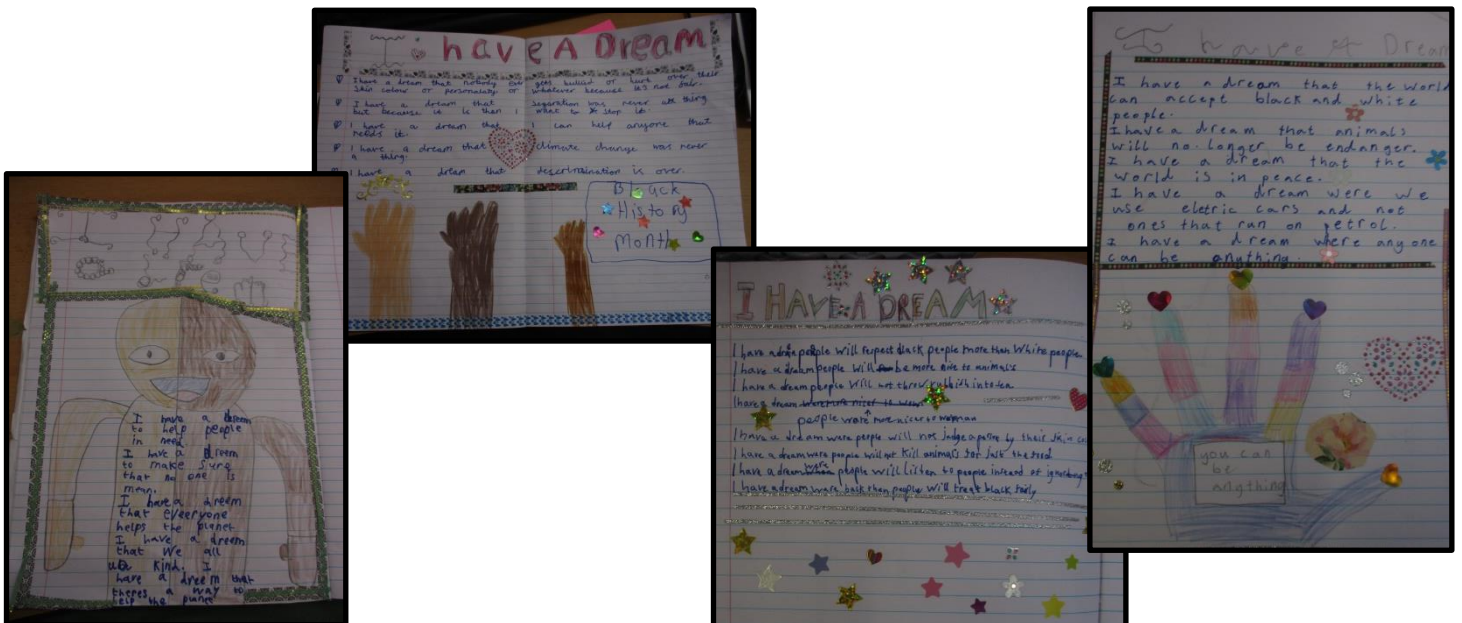 I have A Dream
I have a dream that nobody ever gets bullied or hurt over their
skin colour or personality or whatever because it's not fair.
I have a dream that separation was never a thing
but because it is then i want to stop it.
I have a dream that I can help anyone that
needs it.
I have a dream that climate change was never
a thing.
I have a dream that descrimination is over.
Black
History
Month
I have a dreem
to help people
in need.
I have a dreem
to make sure
that no one is
mean.
I have a dreem
that eveeryone
helps the planet
I have a dreem
that we all
kind. I
have a dreem that
theres a way to
help the planet
I HAVE A DREAM
I have a people will respect black people more than White people.
I have a dream people will be more nice to animals
I have a dream people will not throw rubbish into sea
I have a dream
people were more nicer to woman
I have a dream were people will not judge a by their skin
I have a dream were people will not kill animals for just the food
I have a dream were people will listen to people instead of
I have a dream were back then people will treat black fairly
I have A Dream
I have a dream that the world
can accept black and white
people.
I have a dream that animals
will no longer be endanger.
I have a dream that the
world is in peace.
I have a dream were we
use eletric cars and not
ones that run on petrol.
I have a dream where any one
can be anything.
you can
be
anything